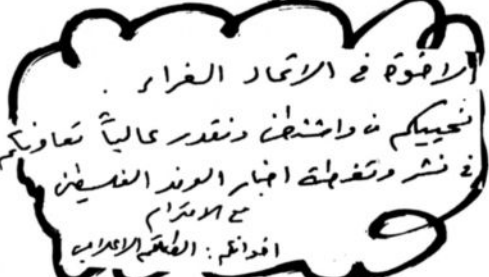 الاخوة في الاتحاد الغراء
نحييكم من واشنطن ونقدر عالياً تعاونكم
في نشر وتغطية اخبار الوفد الفلسطيني
مع الاحترام
اخوانكم : الطاقم الاعلامي